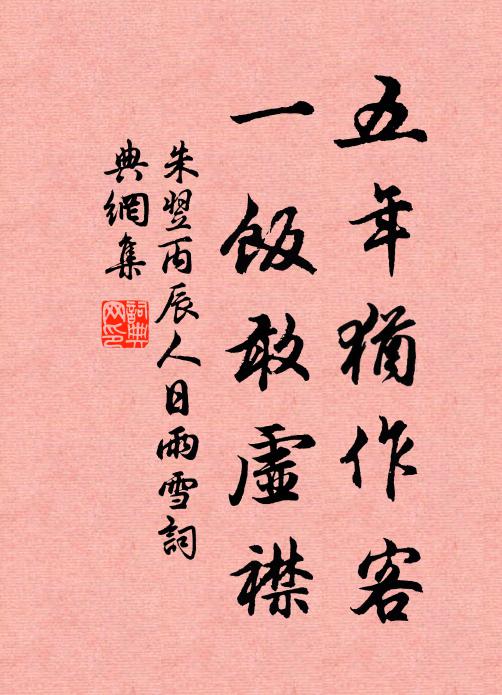 五年猶作客
一飯敢虛襟
朱翌丙辰人日雨雪詞
典網集
詞典網印